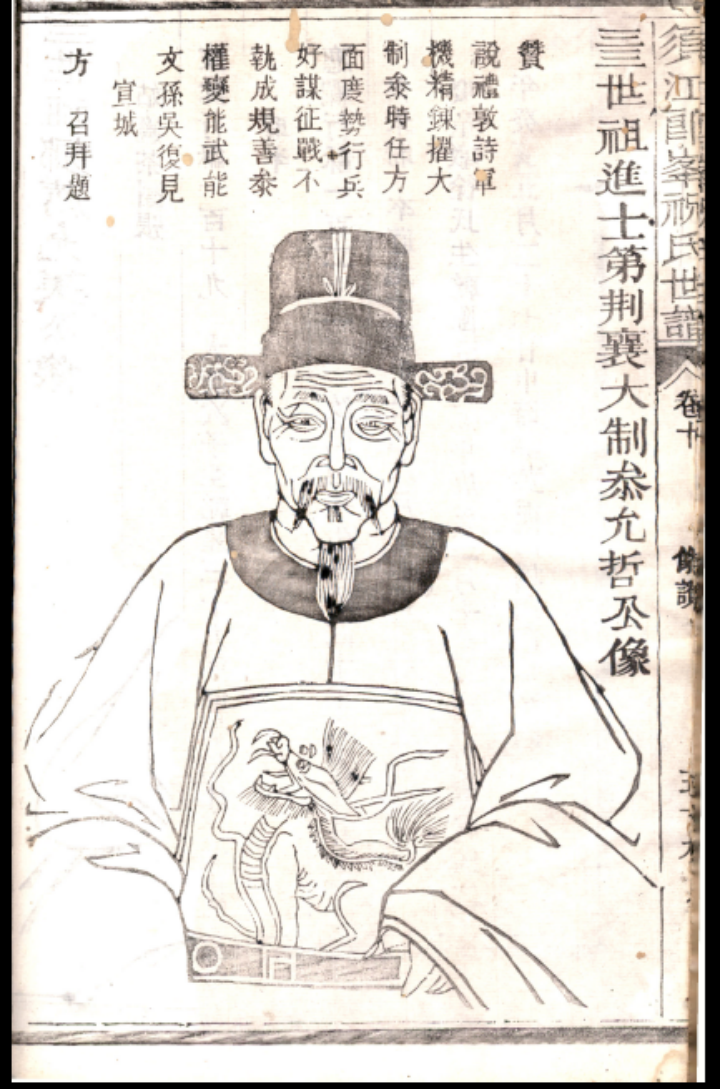 須江郎峯祝氏世譜
卷十
像讚
五十九
三世祖進士第荆襄大制叅允哲公像
贊
說禮敦詩軍
機精鍊擢大
制叅時任方
面度勢行兵
好謀征戰不
執成規善叅
權變能武能
文孫吳復見
宣城
方 召拜題